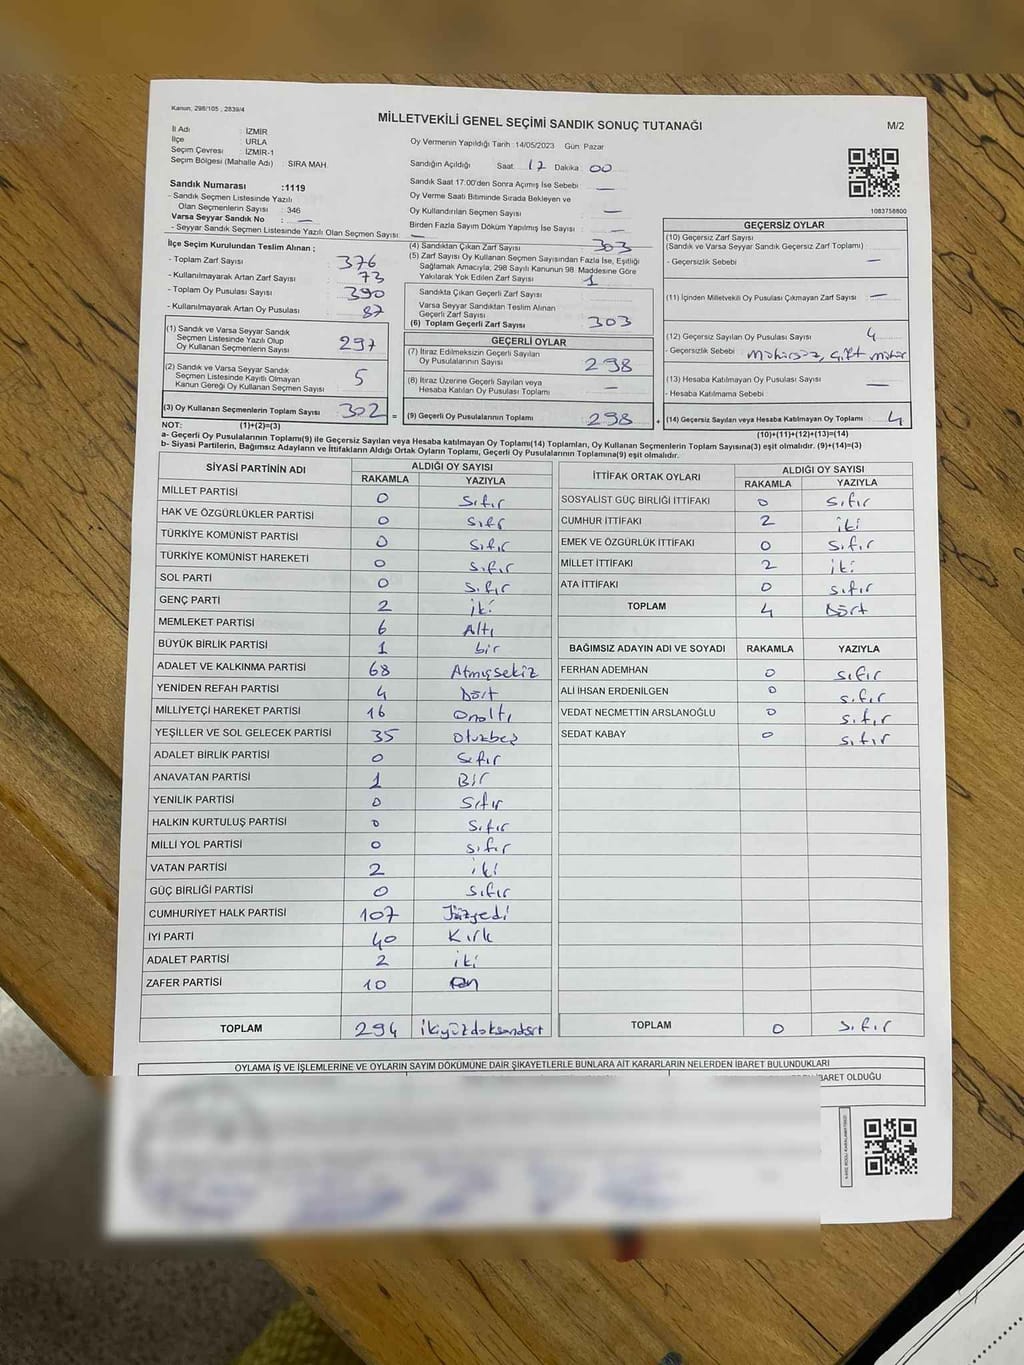 Kanun, 298/105 ; 2839/4
MİLLETVEKİLİ GENEL SEÇİMİ SANDIK SONUÇ TUTANAĞI
M/2
İl Adı : İZMİR
İlçe : URLA
Seçim Çevresi : İZMİR-1
Seçim Bölgesi (Mahalle Adı) : SIRA MAH.
Sandık Numarası :1119
- Sandık Seçmen Listesinde Yazılı
Olan Seçmenlerin Sayısı : 346
Varsa Seyyar Sandık No : —
- Seyyar Sandık Seçmen Listesinde Yazılı Olan Seçmen Sayısı: —
Oy Vermenin Yapıldığı Tarih :14/05/2023 Gün Pazar
Sandığın Açıldığı Saat 17 Dakika 00
Sandık Saat 17.00'den Sonra Açımış İse Sebebi —
Oy Verme Saati Bitiminde Sırada Bekleyen ve
Oy Kullandırılan Seçmen Sayısı —
Birden Fazla Sayım Döküm Yapılmış İse Sayısı —
1083758800
İlçe Seçim Kurulundan Teslim Alınan ;
- Toplam Zarf Sayısı 376
- Kullanılmayarak Artan Zarf Sayısı 73
- Toplam Oy Pusulası Sayısı 390
- Kullanılmayarak Artan Oy Pusulası 87
(1) Sandık ve Varsa Seyyar Sandık
Seçmen Listesinde Yazılı Olup
Oy Kullanan Seçmenlerin Sayısı 297
(2) Sandık ve Varsa Seyyar Sandık
Seçmen Listesinde Kayıtlı Olmayan
Kanun Gereği Oy Kullanan Seçmen Sayısı 5
(3) Oy Kullanan Seçmenlerin Toplam Sayısı 302 =
(4) Sandıktan Çıkan Zarf Sayısı 303
(5) Zarf Sayısı Oy Kullanan Seçmen Sayısından Fazla İse, Eşitliği
Sağlamak Amacıyla, 298 Sayılı Kanunun 98. Maddesine Göre
Yakılarak Yok Edilen Zarf Sayısı 1
Sandıkta Çıkan Geçerli Zarf Sayısı
Varsa Seyyar Sandıktan Teslim Alınan
Geçerli Zarf Sayısı
(6) Toplam Geçerli Zarf Sayısı 303
GEÇERLİ OYLAR
(7) İtiraz Edilmeksizin Geçerli Sayılan
Oy Pusulalarının Sayısı 298
(8) İtiraz Üzerine Geçerli Sayılan veya
Hesaba Katılan Oy Pusulası Toplamı —
(9) Geçerli Oy Pusulalarının Toplamı 298 +
GEÇERSİZ OYLAR
(10) Geçersiz Zarf Sayısı
(Sandık ve Varsa Seyyar Sandık Geçersiz Zarf Toplamı)
- Geçersizlik Sebebi —
(11) İçinden Milletvekili Oy Pusulası Çıkmayan Zarf Sayısı —
(12) Geçersiz Sayılan Oy Pusulası Sayısı 4
- Geçersizlik Sebebi mühürsüz, çift mühür
(13) Hesaba Katılmayan Oy Pusulası Sayısı —
- Hesaba Katılmama Sebebi
(14) Geçersiz Sayılan veya Hesaba Katılmayan Oy Toplamı 4
NOT: (1)+(2)=(3)
(10)+(11)+(12)+(13)=(14)
a- Geçerli Oy Pusulalarının Toplamı(9) ile Geçersiz Sayılan veya Hesaba katılmayan Oy Toplamı(14) Toplamları, Oy Kullanan Seçmenlerin Toplam Sayısına(3) eşit olmalıdır. (9)+(14)=(3)
b- Siyasi Partilerin, Bağımsız Adayların ve İttifakların Aldığı Ortak Oyların Toplamı, Geçerli Oy Pusulalarının Toplamına(9) eşit olmalıdır.
SİYASİ PARTİNİN ADI ALDIĞI OY SAYISI
RAKAMLA YAZIYLA
MİLLET PARTİSİ 0 Sıfır
HAK VE ÖZGÜRLÜKLER PARTİSİ 0 Sıfır
TÜRKİYE KOMÜNİST PARTİSİ 0 Sıfır
TÜRKİYE KOMÜNİST HAREKETİ 0 Sıfır
SOL PARTİ 0 Sıfır
GENÇ PARTİ 2 iki
MEMLEKET PARTİSİ 6 Altı
BÜYÜK BİRLİK PARTİSİ 1 bir
ADALET VE KALKINMA PARTİSİ 68 Atmışsekiz
YENİDEN REFAH PARTİSİ 4 Dört
MİLLİYETÇİ HAREKET PARTİSİ 16 Onaltı
YEŞİLLER VE SOL GELECEK PARTİSİ 35 Otuzbeş
ADALET BİRLİK PARTİSİ 0 Sıfır
ANAVATAN PARTİSİ 1 Bir
YENİLİK PARTİSİ 0 Sıfır
HALKIN KURTULUŞ PARTİSİ 0 Sıfır
MİLLİ YOL PARTİSİ 0 Sıfır
VATAN PARTİSİ 2 iki
GÜÇ BİRLİĞİ PARTİSİ 0 Sıfır
CUMHURİYET HALK PARTİSİ 107 Yüzyedi
İYİ PARTİ 40 Kırk
ADALET PARTİSİ 2 iki
ZAFER PARTİSİ 10 On
TOPLAM 294 ikiyüzdoksandört
İTTİFAK ORTAK OYLARI ALDIĞI OY SAYISI
RAKAMLA YAZIYLA
SOSYALİST GÜÇ BİRLİĞİ İTTİFAKI 0 Sıfır
CUMHUR İTTİFAKI 2 iki
EMEK VE ÖZGÜRLÜK İTTİFAKI 0 Sıfır
MİLLET İTTİFAKI 2 iki
ATA İTTİFAKI 0 Sıfır
TOPLAM 4 Dört
BAĞIMSIZ ADAYIN ADI VE SOYADI RAKAMLA YAZIYLA
FERHAN ADEMHAN 0 Sıfır
ALİ İHSAN ERDENİLGEN 0 Sıfır
VEDAT NECMETTİN ARSLANOĞLU 0 Sıfır
SEDAT KABAY 0 Sıfır
TOPLAM 0 Sıfır
OYLAMA İŞ VE İŞLEMLERİNE VE OYLARIN SAYIM DÖKÜMÜNE DAİR ŞİKAYETLERLE BUNLARA AİT KARARLARIN NELERDEN İBARET BULUNDUKLARI
İBARET OLDUĞU